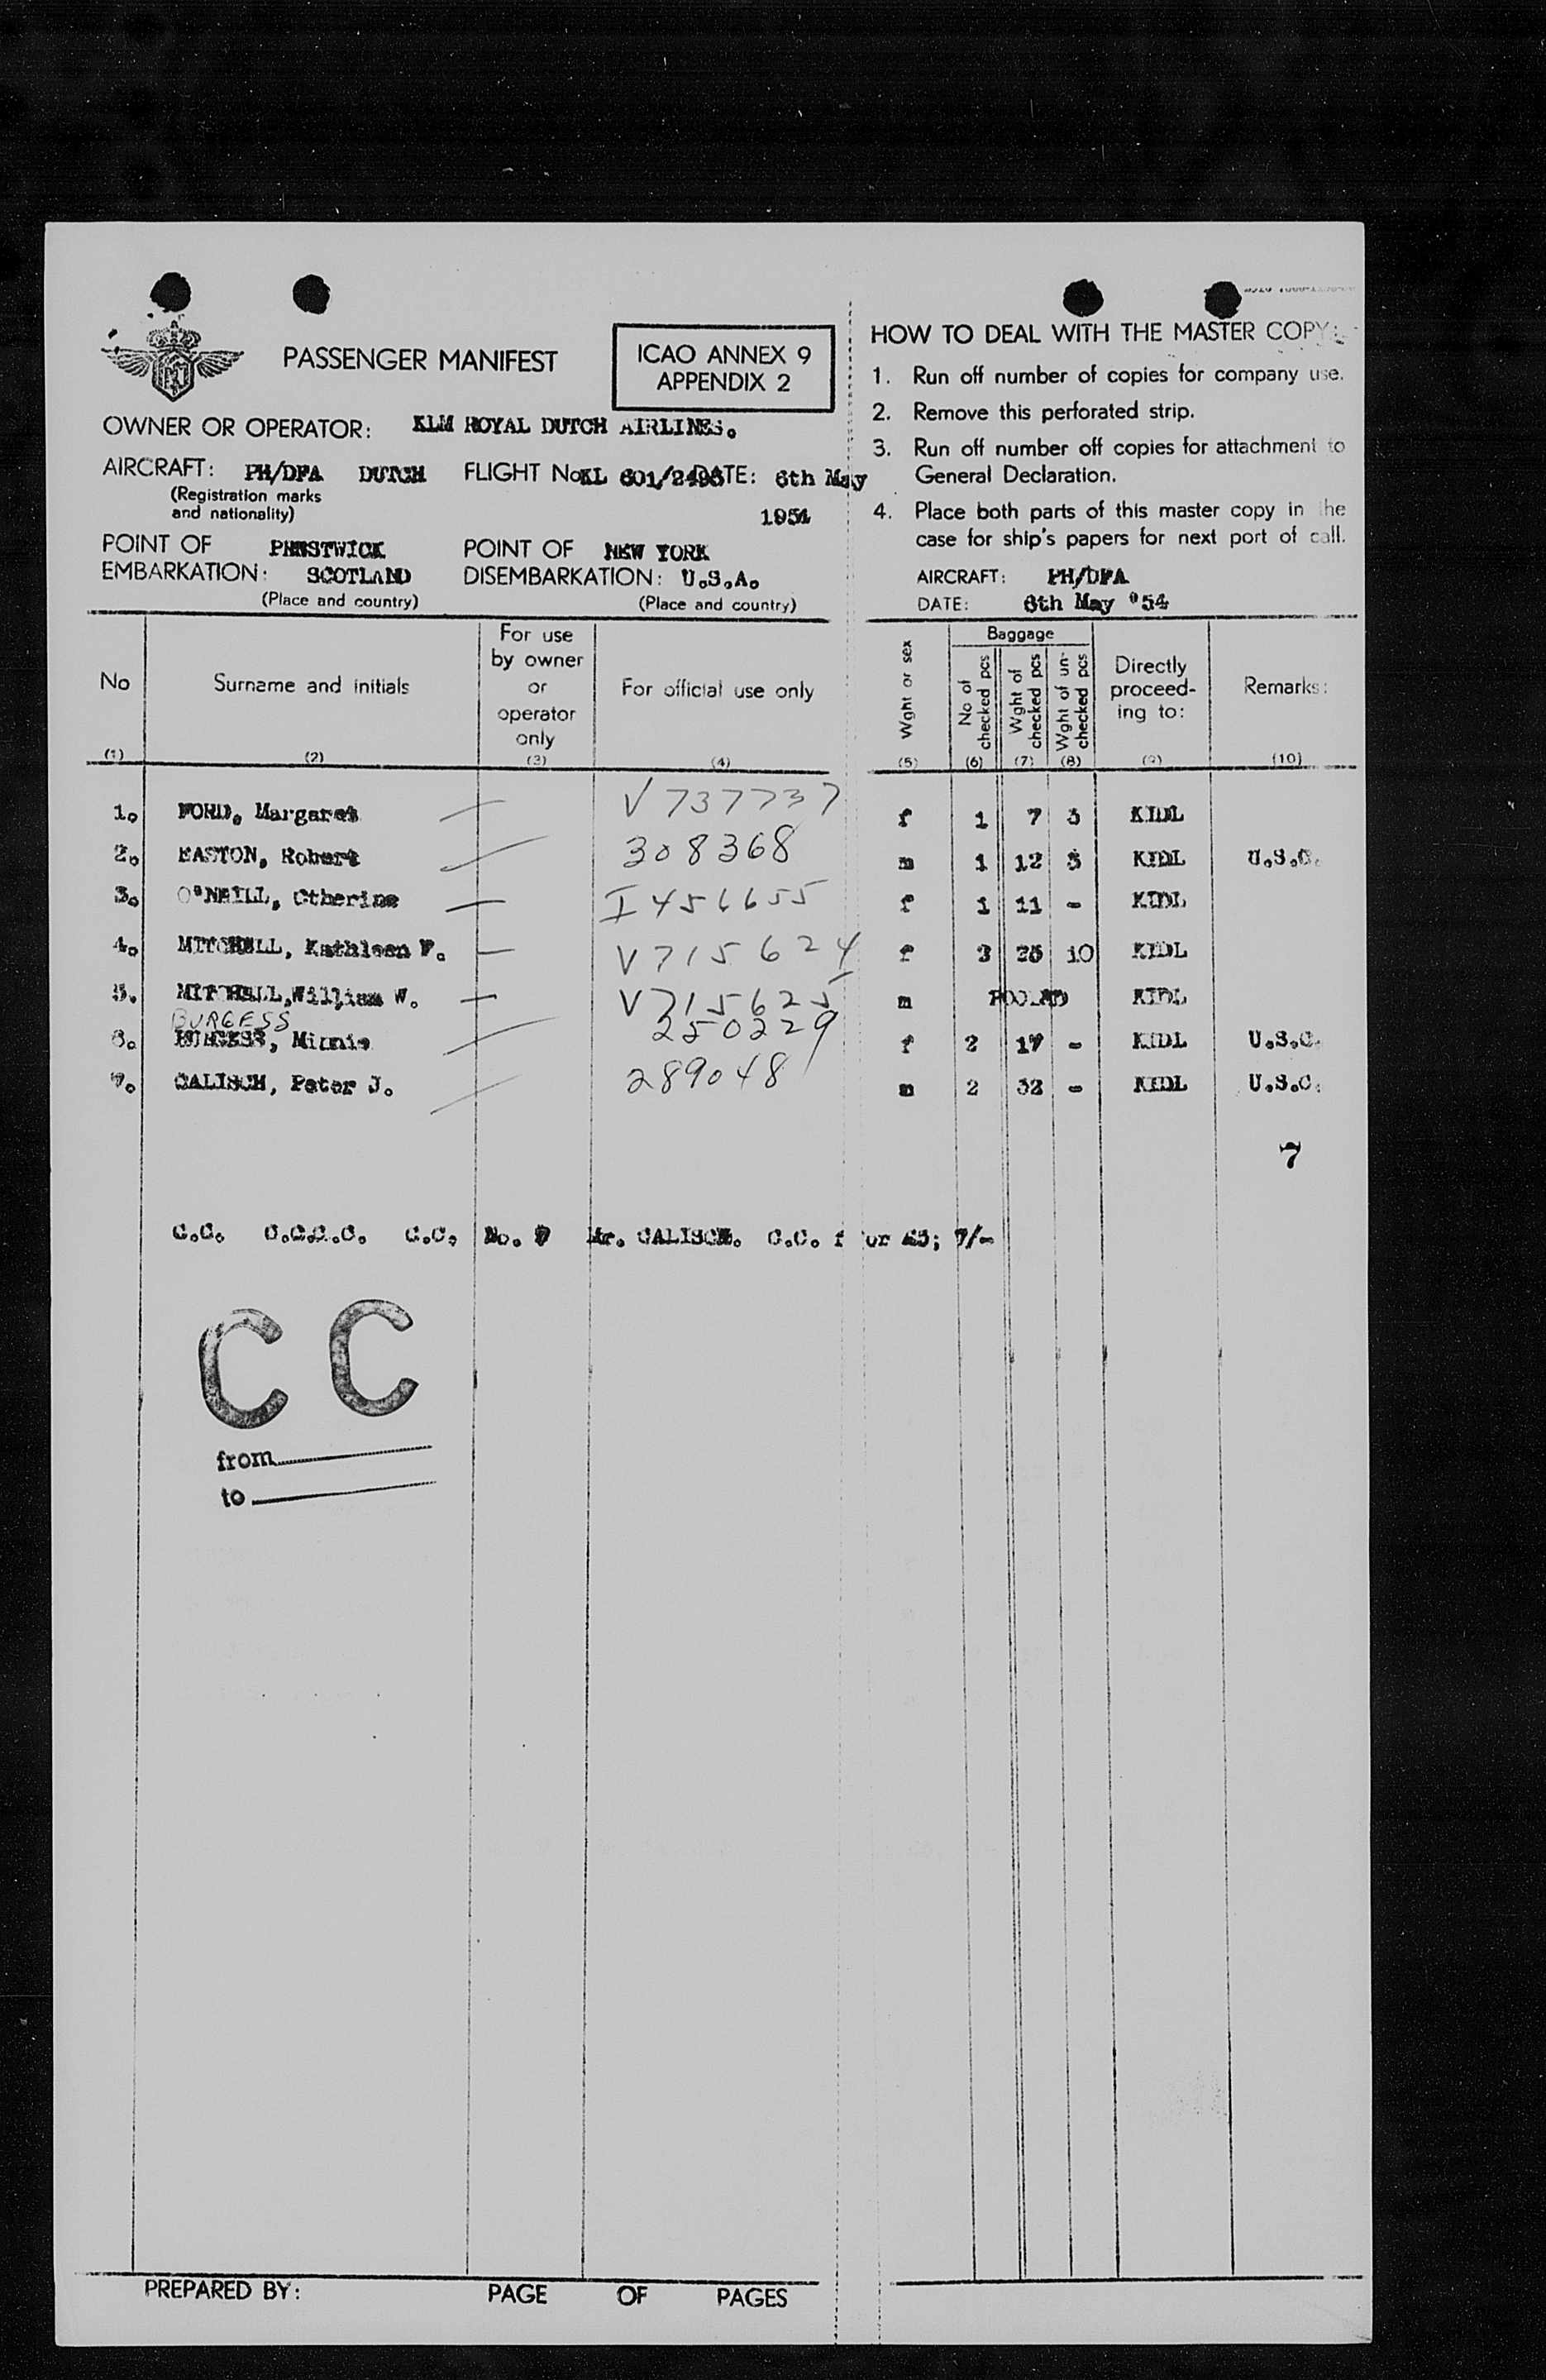 PASSENGER MANIFEST
ICAO ANNEX 9
APPENDIX 2
OWNER OR OPERATOR: KLM ROYAL DUTCH AIRLINES.
AIRCRAFT: PH/DFA DUTCH FLIGHT No KL 601/2493 DATE: 6th May
(Registration marks
and nationality)
1954
POINT OF PRESTWICK POINT OF NEW YORK
EMBARKATION: SCOTLAND DISEMBARKATION: U.S.A.
(Place and country) (Place and country)
HOW TO DEAL WITH THE MASTER COPY:
1. Run off number of copies for company use.
2. Remove this perforated strip.
3. Run off number off copies for attachment to
General Declaration.
4. Place both parts of this master copy in the
case for ship's papers for next port of call.
AIRCRAFT: PH/DFA
DATE: 6th May '54
No
Surname and initials
For use
by owner
or
operator
only
For official use only
Wght or sex
Baggage
No of
checked pcs
Wght of
checked pcs
Wght of un-
checked pcs
Directly
proceed-
ing to:
Remarks:
(1) (2) (3) (4) (5) (6) (7) (8) (9) (10)
1. FORD, Margaret V737737 f 1 7 3 KIDL
2. EASTON, Robert 308368 m 1 12 5 KIDL U.S.C.
3. O'NEILL, Ctherine I456655 f 1 11 - KIDL
4. MITCHELL, Kathleen F. V715624 f 3 25 10 KIDL
5. MITCHELL,William W. V715625 m POOLED KIDL
BURGESS
6. BURGESS, Minnie 250229 f 2 17 - KIDL U.S.C.
7. CALISCH, Peter J. 289048 m 2 32 - KIDL U.S.C.
7
C.C. C.C.C.C. C.C. No. 7 Mr. CALISCH. C.C. f or £5; 7/-
C C
from
to
PREPARED BY: PAGE OF PAGES